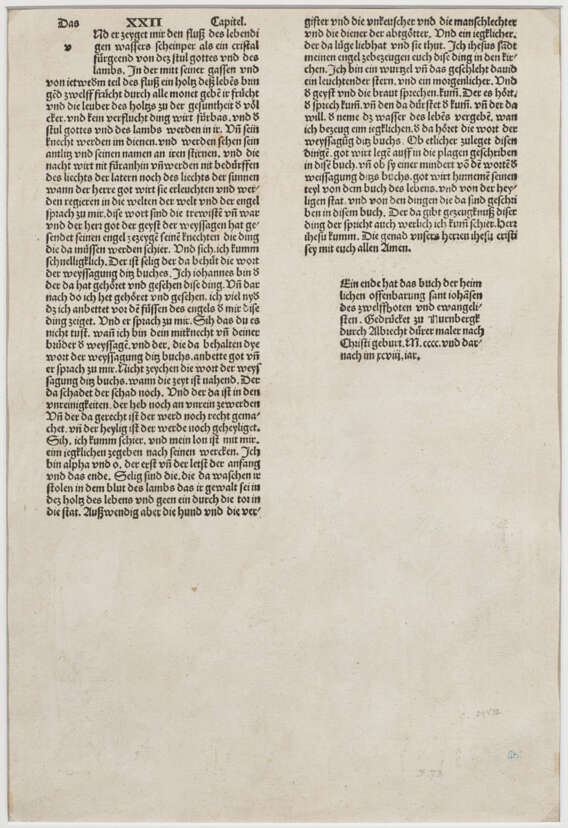 Das XXII Capitel.
Nd er zeyget mir den fluß des lebendi
v gen wassers scheinper als ein cristal
fürgend von dez stul gottes vnd des
lambs. In der mitt seiner gassen vnd
von ietwedm teil des fluß ein holtz deß lebēs brin
gēd zwelff frücht durch alle monet gebē ir frücht
vnd die leuber des holtzs zu der gesuntheit d völ
cker. vnd kein verflucht ding wirt fürbas. vnd d
stul gottes vnd des lambs werden in ir. Vn̄ sein
knecht werden im dienen. vnd werden sehen sein
antlitz vnd seinen namen an iren stirnen. vnd die
nacht wirt nit füranhin vn̄ werden nit bedürffen
des liechts der latern noch des liechts der sunnen
wann der herre got wirt sie erleuchten vnd wer-
den regieren in die welten der welt vnd der engel
sprach zu mir. dise wort sind die trewiste vn̄ war
vnd der herr got der geyst der weyssagen hat ge-
sendet seinen engel zezeygē seinē knechten die ding
die da müssen werden schier. Vnd sich. ich kumm
schnelligklich. Der ist selig der da behüt die wort
der weyssagung ditz buches. Ich iohannes bin d
der da hat gehöret vnd gesehen dise ding. Vn̄ dar
nach do ich het gehöret vnd gesehen. ich viel nyd
dz ich anbettet vor dē füssen des engels d mir dise
ding zeiget. Vnd er sprach zu mir. Sih das du es
nicht tust. wan̄ ich bin dein mitknecht vn̄ deiner
brüder d weyssagē. vnd der. die da behalten dye
wort der weyssagung ditz buchs. anbette got vn̄
er sprach zu mir. Nicht zeychen die wort der weys
sagung ditz buchs. wann die zeyt ist nahend. Der
da schadet der schad noch. Vnd der da ist in den
vnreinigkeiten. der heb noch an vnrein zewerden
Vn̄ der da gerecht ist der werd noch recht gema-
chet. vn̄ der heylig ist der werde noch geheyliget.
Sih. ich kumm schier. vnd mein lon ist mit mir.
eim iegklichen zegeben nach seinen wercken. Ich
bin alpha vnd o. der erst vn̄ der letst der anfang
vnd das ende. Selig sind die. die da waschen ir
stolen in dem blut des lambs das ir gewalt sei in
dez holtz des lebens vnd geen ein durch die tor in
die stat. Außwendig aber die hund vnd die ver-
gifter vnd die vnkeuscher vnd die manschlechter
vnd die diener der abtgötter. Vnd ein iegklicher.
der da lüge liebhat vnd sie thut. Ich ihesus sādt
meinen engel zebezeugen euch dise ding in den kir-
chen. Ich bin ein wurtzel vn̄ das geschleht dauid
ein leuchtender stern. vnd ein morgenlicher. Vnd
d geyst vnd die braut sprechen. kum̄. Der es hört.
d sprech kum̄. vn̄ den da dürstet d kum̄. vn̄ der da
will. d neme dz wasser des lebēs vergebē. wan
ich bezeug ein iegklichen. d da höret die wort der
weyssagūg ditz buchs. Ob etlicher zuleget disen
dingē. got wirt legē auff in die plagen geschriben
in disem buch. vn̄ ob sy einer mindert vō dē wortē d
weissagung ditz buchs. got wirt hinnemē seinen
teyl von dem buch des lebens. vnd von der hey-
ligen stat. vnd von den dingen die da sind geschri
ben in disem buch. Der da gibt gezeugknuß diser
ding der spricht auch werlich ich kum̄ schier. Herr
ihesu kumm. Die genad vnsers herren ihesu cristi
sey mit euch allen Amen.
Ein ende hat das buch der heim
lichen offenbarung sant iohāsen
des zwelfboten vnd ewangeli-
sten. Gedrücket zu Nurnbergk
durch Albrecht dürer maler nach
Christi geburt. M.cccc. vnd dar-
nach im xcviij. iar.